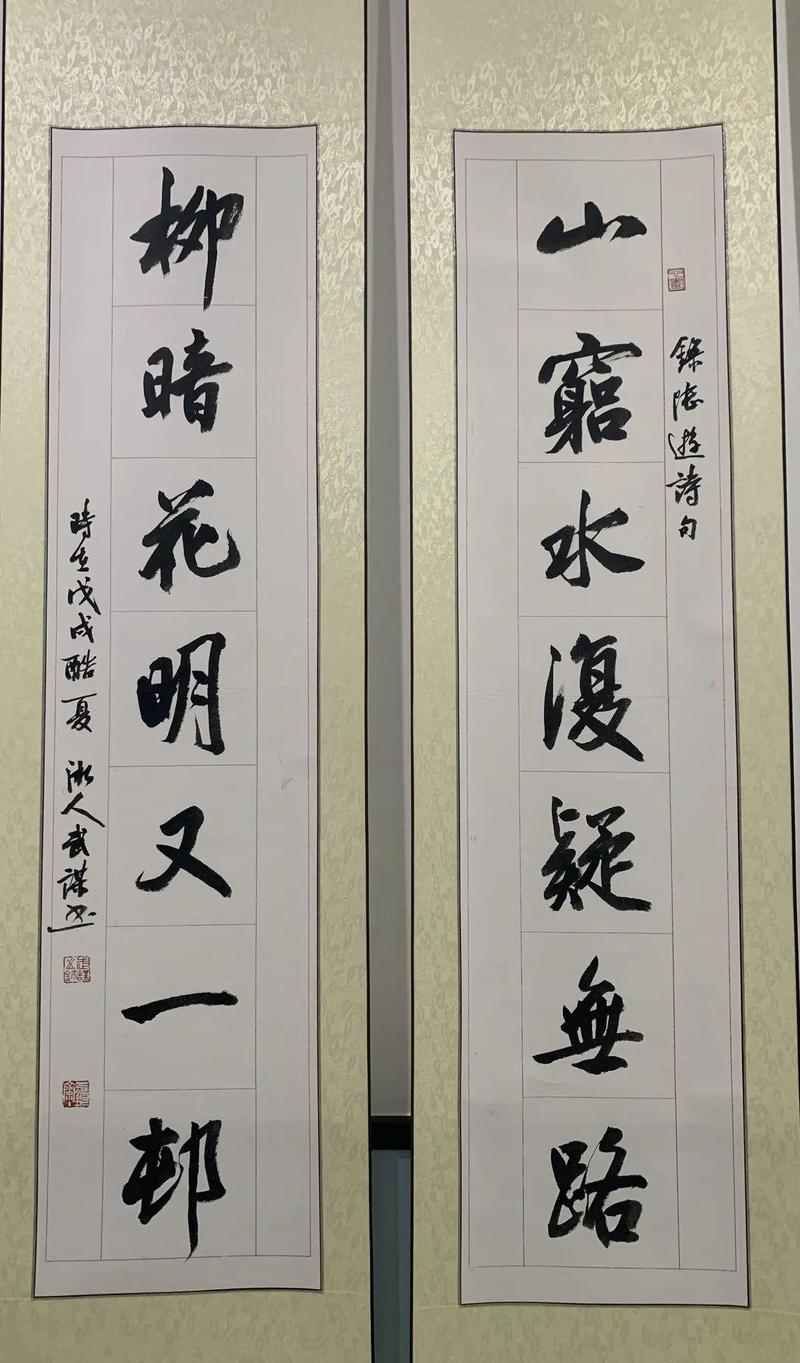 錄陸遊詩句
山窮水復疑無路
柳暗花明又一邨
時在戊戌酷夏 浙人武謀書